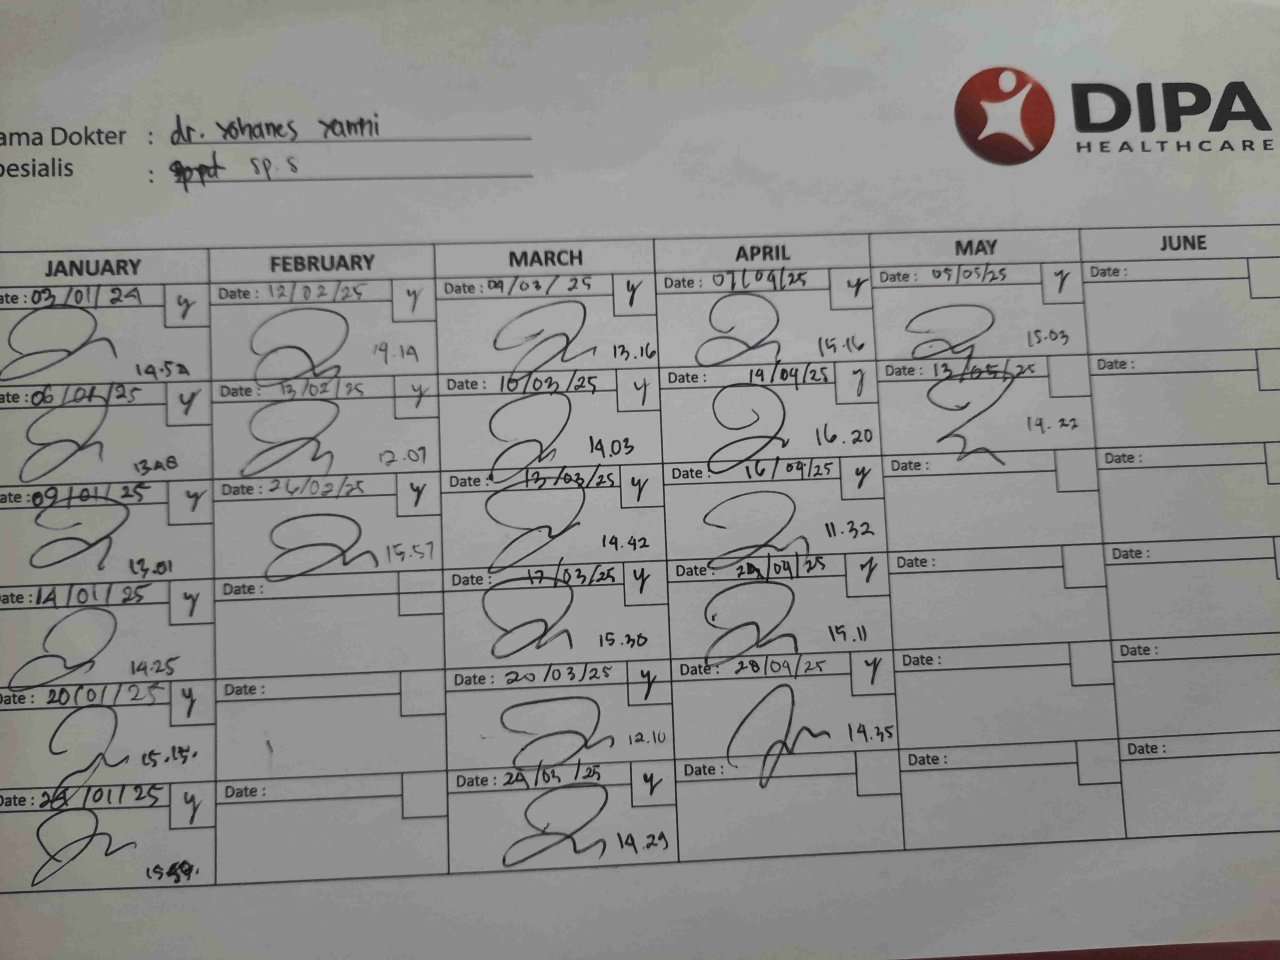 DIPA
HEALTHCARE
ama Dokter : dr. Yohanes Yanni
pesialis : sp.s
JANUARY FEBRUARY MARCH APRIL MAY JUNE
ate : 03/01/24 y Date : 12/02/25 y Date : 04/03/25 y Date : 07/04/25 y Date : 05/05/25 y Date :
14.52 14.14 13.16 15.16 15.03
ate : 06/01/25 y Date : 13/02/25 y Date : 10/03/25 y Date : 14/04/25 y Date : 13/05/25 Date :
12.07 14.03 16.20 14.22
ate : 09/01/25 y Date : 26/02/25 y Date : 13/03/25 y Date : 16/04/25 y Date : Date :
13.01 15.57 14.42 11.32
ate : 14/01/25 y Date : Date : 17/03/25 y Date : /04/25 y Date : Date :
14.25 15.30 15.11
Date : 20/01/25 y Date : Date : 20/03/25 y Date : 28/04/25 y Date : Date :
15.15. 12.10 14.35
Date : /01/25 y Date : Date : 24/03/25 y Date : Date : Date :
14.29